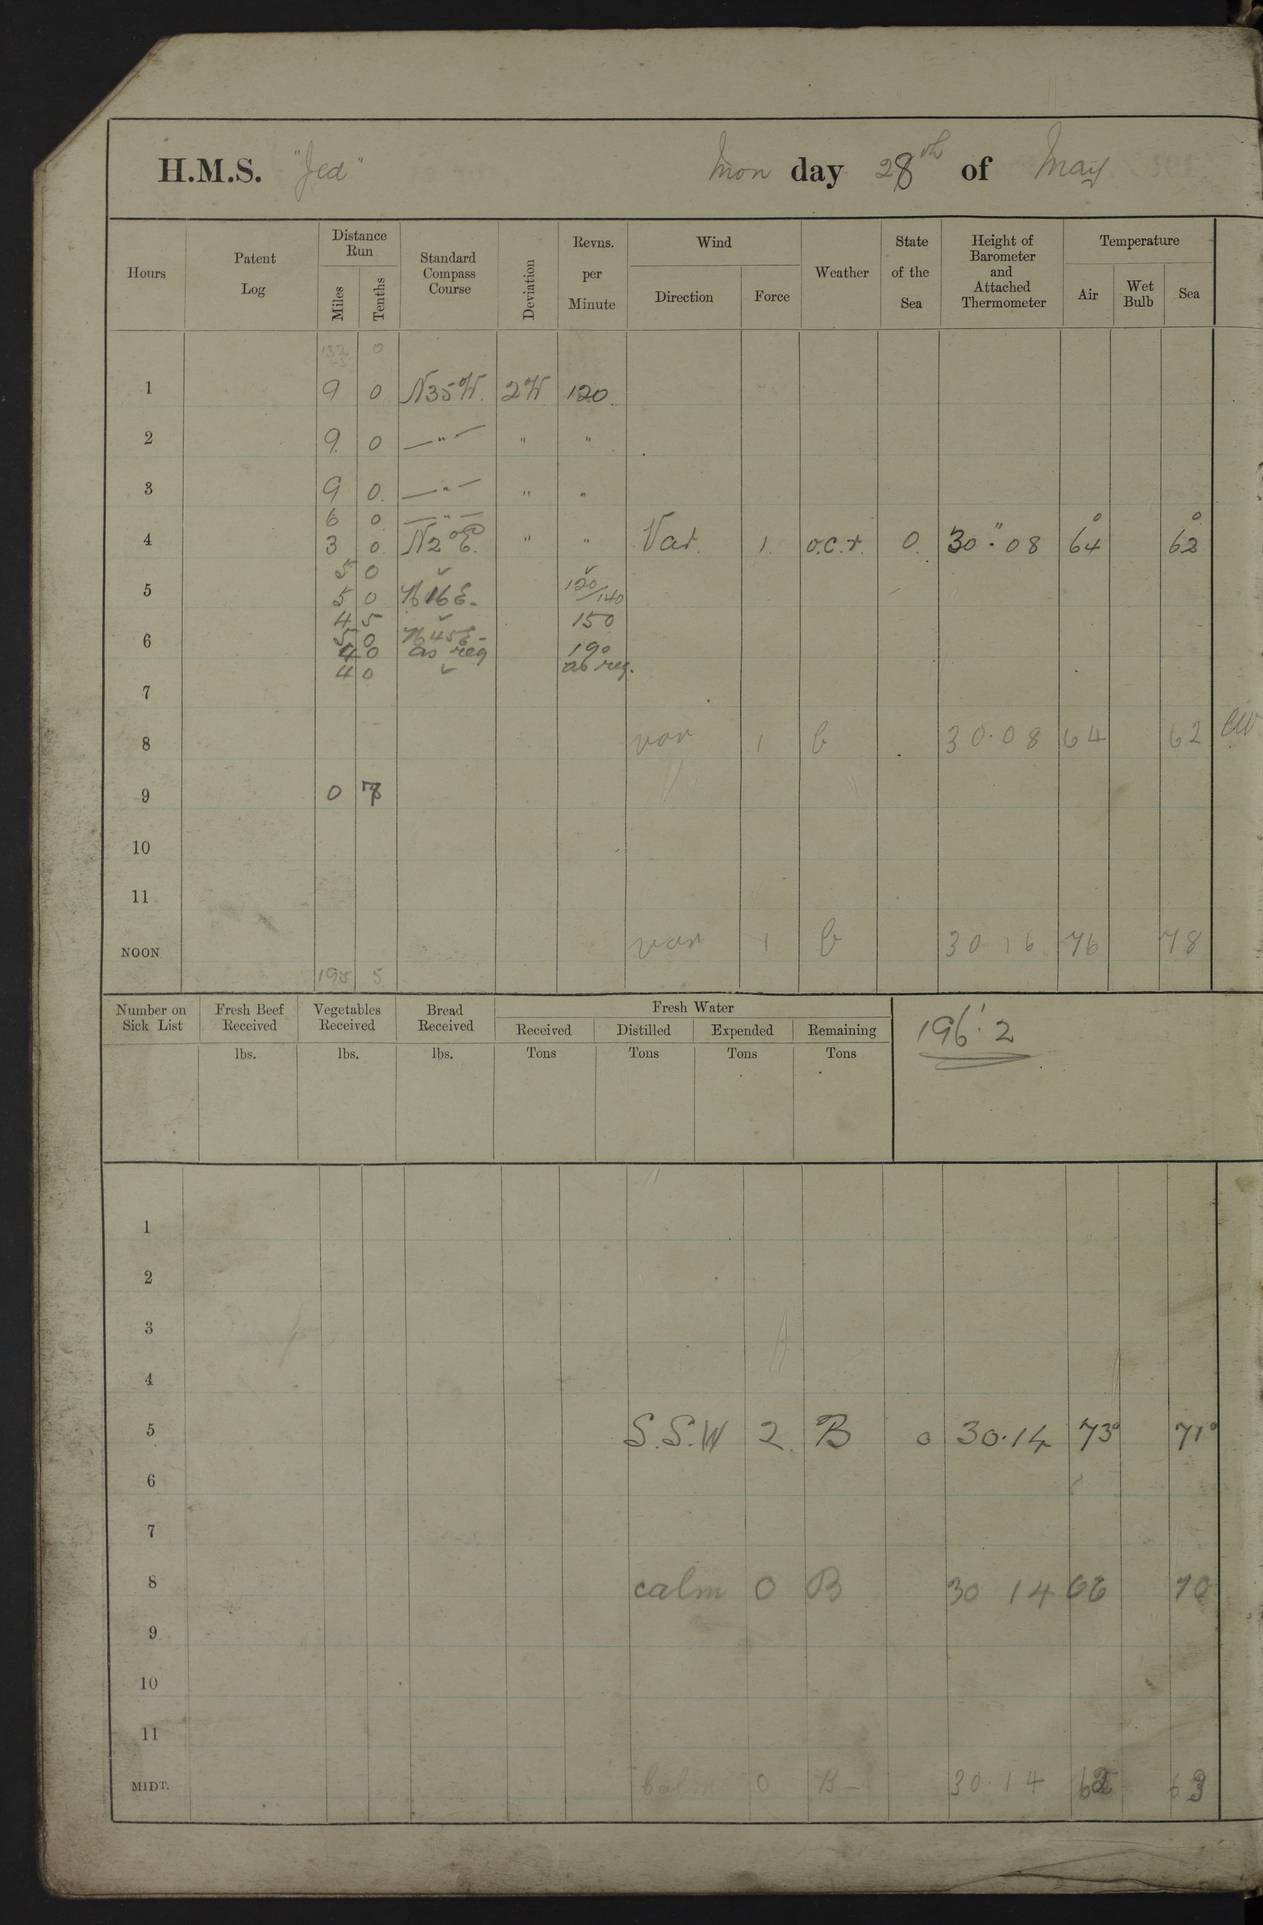 H.M.S. "Jed" Mon day 28th of May
Hours Patent Log Distance Run Miles Tenths Standard Compass Course Deviation Revns. per Minute Wind Direction Force Weather State of the Sea Height of Barometer and Attached Thermometer Temperature Air Wet Bulb Sea
132 0
1 9 0 N35°W. 2W 120
2 9 0 —"— " "
3 9 0 —"— " "
6 0 —"—
4 3 0 N2°E. " " Var. 1. o.c.r. 0. 30".08 64° 62°
5 0 ✓ ✓
5 5 0 N16E. 120/140
4 5 ✓ 150
6 5 0 N45E- 190
4 0 as req as req.
4 0 ✓
7
8 var 1 b 30.08 64 62 CW
9 0 7
10
11
NOON var 1 b 30 16 76 78
195 5
Number on Sick List Fresh Beef Received lbs. Vegetables Received lbs. Bread Received lbs. Fresh Water Received Tons Distilled Tons Expended Tons Remaining Tons
196'.2
1
2
3
4
5 S.S.W 2. B 0 30.14 73° 71°
6
7
8 calm 0 B 30 14 66 70
9
10
11
MIDT. calm 0 B- 30.14 63